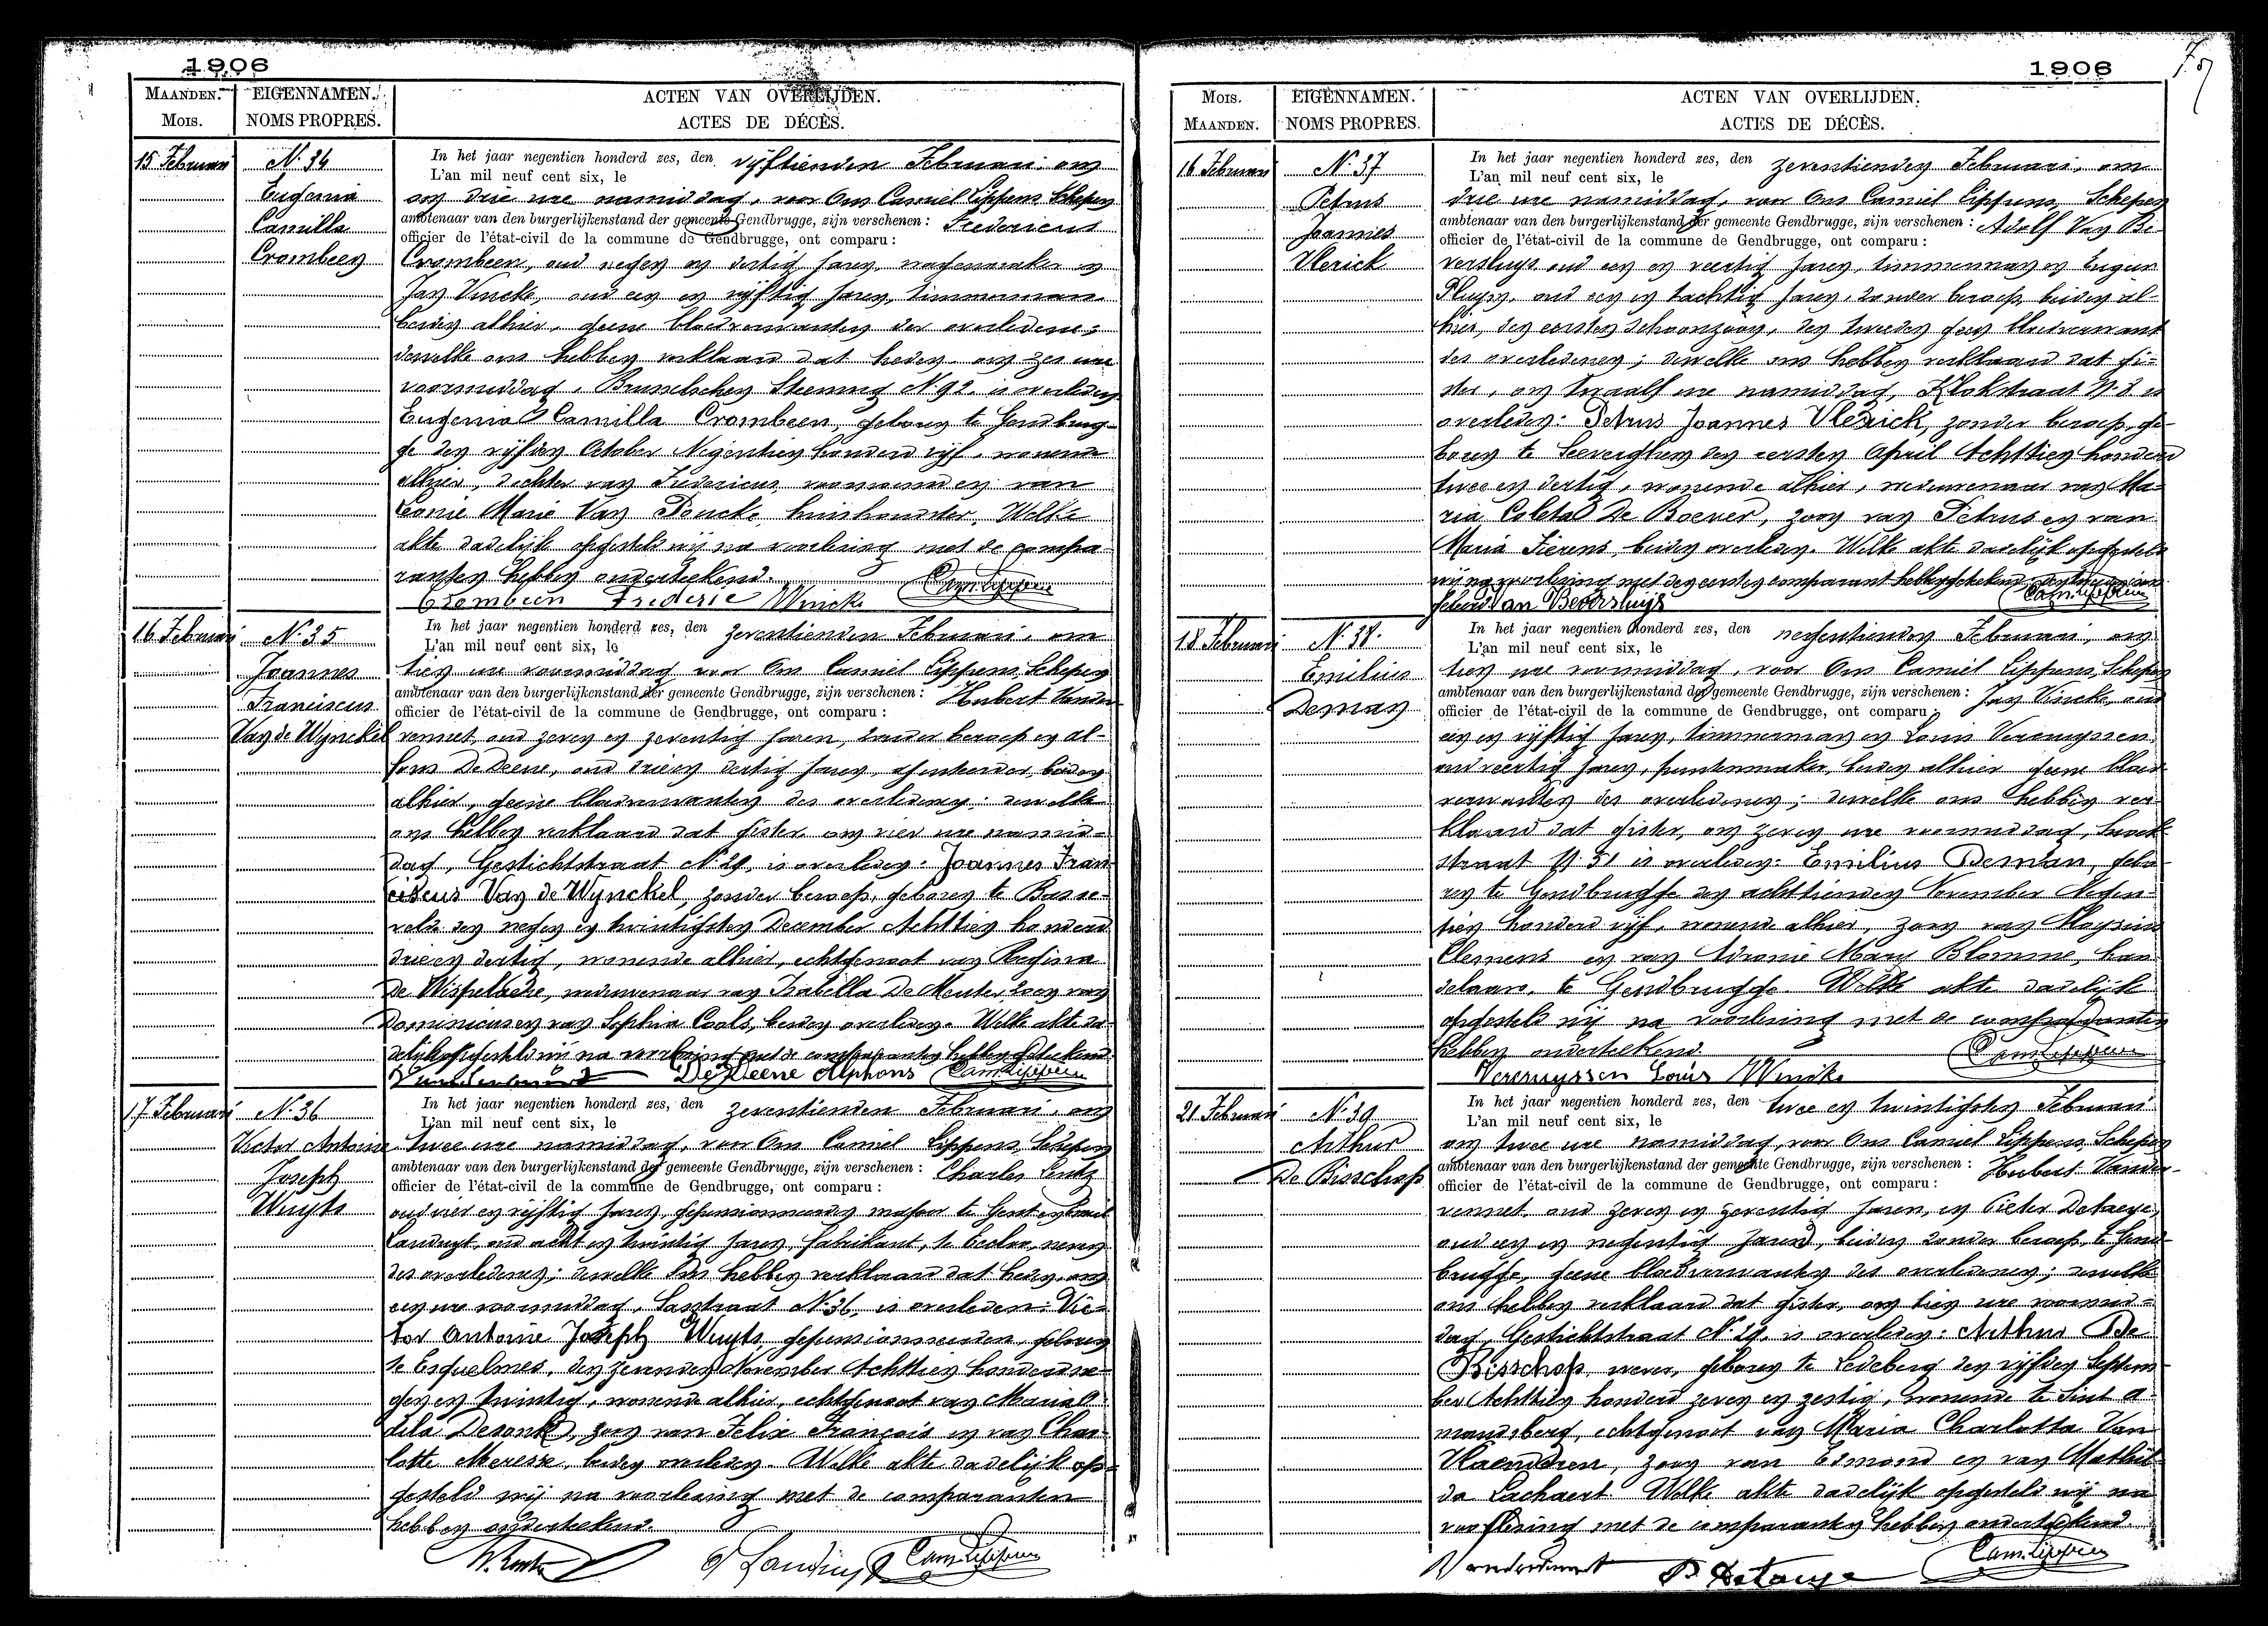 1906
MAANDEN. EIGENNAMEN. ACTEN VAN OVERLIJDEN.
MOIS. NOMS PROPRES. ACTES DE DÉCÈS.
15 Februari N. 34 In het jaar negentien honderd zes, den vijftienden Februari, om
L'an mil neuf cent six, le
Eugenia om drie ure namiddag, voor Ons Camiel Lippens Schepen
ambtenaar van den burgerlijkenstand der gemeente Gendbrugge, zijn verschenen : Fredericus
Camilla officier de l'état-civil de la commune de Gendbrugge, ont comparu :
Crombeen Crombeen, oud negen en dertig jaren, wagenmaker en
Jan Vincke, oud een en vijftig jaren, timmerman
beiden alhier, geene bloedverwanten der overledene;
dewelke ons hebben verklaard dat heden, om zes ure
voormiddag, Brusselschen Steenweg N. 92, is overleden
Eugenia Camilla Crombeen, geboren te Gendbrug-
ge den vijfden October Negentien honderd vijf, wonende
alhier, dochter van Fredericus voornoemd en van
Leonie Marie Van Poucke, huishoudster. Welke
akte dadelijk opgesteld wij na voorlezing met de compa-
ranten hebben onderteekend.
Crombeen Frederic Wincke Cam. Lippens
16 Februari N. 35 In het jaar negentien honderd zes, den zeventienden Februari, om
L'an mil neuf cent six, le
Joannes tien ure voormiddag voor Ons Camiel Lippens, Schepen
ambtenaar van den burgerlijkenstand der gemeente Gendbrugge, zijn verschenen : Hubert Vander-
Franciscus officier de l'état-civil de la commune de Gendbrugge, ont comparu :
Van de Wynckel vennet, oud zeven en zeventig jaren, zonder beroep en Al-
fons DeDeene, oud drie en dertig jaren, beiden
alhier, geene bloedverwanten des overledenen; dewelke
ons hebben verklaard dat gister om vier ure namid-
dag, Gestichtstraat N. 29, is overleden: Joannes Fran-
ciscus Van de Wynckel, zonder beroep, geboren te Basse-
velde den negen en twintigsten December Achttien honderd
drie en dertig, wonende alhier, echtgenoot van Regina
De Wispelaere, weduwenaar van Isabella De Meuter, zoon van
Dominicus en van Sophia Cools, beiden overleden. Welke akte da-
delijk opgesteld wij na voorlezing met de comparanten hebben geteekend.
DeDeene Alphons Cam. Lippens
17 Februari N. 36 In het jaar negentien honderd zes, den zeventienden Februari, om
L'an mil neuf cent six, le
Victor Antoine twee ure namiddag, voor Ons Camiel Lippens, Schepen
ambtenaar van den burgerlijkenstand der gemeente Gendbrugge, zijn verschenen : Charles Lentz
Joseph officier de l'état-civil de la commune de Gendbrugge, ont comparu :
Wuyts oud vier en vijftig jaren, gepensionneerden majoor te Gent en Emiel
Landuyt, oud acht en twintig jaren, fabrikant, te Eecloo, neven
des overledenen; dewelke Ons hebben verklaard dat heden, om
een ure voormiddag, Lasstraat N. 36, is overleden: Vic-
tor Antoine Joseph Wuyts, gepensionneerden, geboren
te Esquelmes, den zevenden November Achttien honderd ne-
gen en twintig, wonende alhier, echtgenoot van Maria O-
dila Desonk, zoon van Felix François en van Char-
lotte Meresse, beiden overleden. Welke akte dadelijk op-
gesteld wij na voorlezing met de comparanten
hebben onderteekend.
E. Landuyt Cam. Lippens
1906
MOIS. EIGENNAMEN. ACTEN VAN OVERLIJDEN.
MAANDEN. NOMS PROPRES. ACTES DE DÉCÈS.
16 Februari N. 37 In het jaar negentien honderd zes, den zeventienden Februari, om
L'an mil neuf cent six, le
Petrus drie ure namiddag, voor Ons Camiel Lippens, Schepen
ambtenaar van den burgerlijkenstand der gemeente Gendbrugge, zijn verschenen : Adolf Van Be-
Joannes officier de l'état-civil de la commune de Gendbrugge, ont comparu :
Vlerick versluys oud een en veertig jaren, timmerman en Eugeen
oud een en tachtig jaren, zonder beroep, beiden al-
hier, den eersten schoonzoon, den tweeden geen bloedverwant
des overledenen; dewelke ons hebben verklaard dat gi-
ster, om twaalf ure namiddag, Klokstraat N. 8 is
overleden: Petrus Joannes Vlerick, zonder beroep, ge-
boren te Leeverghem den eersten April Achttien honderd
twee en dertig, wonende alhier, weduwenaar van Ma-
ria Coleta De Boever, zoon van Petrus en van
Maria Fierens, beiden overleden. Welke akte dadelijk opgesteld
wij na voorlezing met den eersten comparant hebben geteekend,
Van Beversluys Cam. Lippens
18 Februari N. 38. In het jaar negentien honderd zes, den negentienden Februari, om
L'an mil neuf cent six, le
Emilius tien ure voormiddag, voor Ons Camiel Lippens, Schepen
ambtenaar van den burgerlijkenstand der gemeente Gendbrugge, zijn verschenen : Jan Vincke, oud
Deman officier de l'état-civil de la commune de Gendbrugge, ont comparu :
een en vijftig jaren, timmerman en Louis Vercruyssen,
oud veertig jaren, puntenmaker, beiden alhier geene bloed-
verwanten des overledenen; dewelke ons hebben ver-
klaard dat gister, om zeven ure voormiddag,
straat N. 51 is overleden: Emilius Deman, gebo-
ren te Gendbrugge den achttienden November Negen-
tien honderd vijf, wonende alhier, zoon van Aloysius
Clemens en van Adronie Mary Blomme, han-
delaars, te Gendbrugge. Welke akte dadelijk
opgesteld wij na voorlezing met de comparanten
hebben onderteekend
Vercruyssen Louis Wincke Cam. Lippens
21 Februari N. 39 In het jaar negentien honderd zes, den twee en twintigsten Februari
L'an mil neuf cent six, le
Arthur om twee ure namiddag, voor Ons Camiel Lippens, Schepen
ambtenaar van den burgerlijkenstand der gemeente Gendbrugge, zijn verschenen : Hubert Vander-
De Bisschop officier de l'état-civil de la commune de Gendbrugge, ont comparu :
vennet, oud zeven en zeventig jaren, en Pieter Detaeye,
oud een en negentig jaren, beiden zonder beroep, te Gend-
brugge, geene bloedverwanten des overledenen; dewelke
ons hebben verklaard dat gister, om tien ure voormid-
dag, Gestichtstraat N. 29, is overleden: Arthur De
Bisschop, wever, geboren te Ledeberg den vijfden Septem-
ber Achttien honderd zeven en zestig, wonende te Sint A-
mandsberg, echtgenoot van Maria Charlotta Van
Vlaenderen, zoon van Edmond en van Mathil-
da Lachaert. Welke akte dadelijk opgesteld wij na
voorlezing met de comparanten hebben onderteekend.
P. Detaeye Cam. Lippens